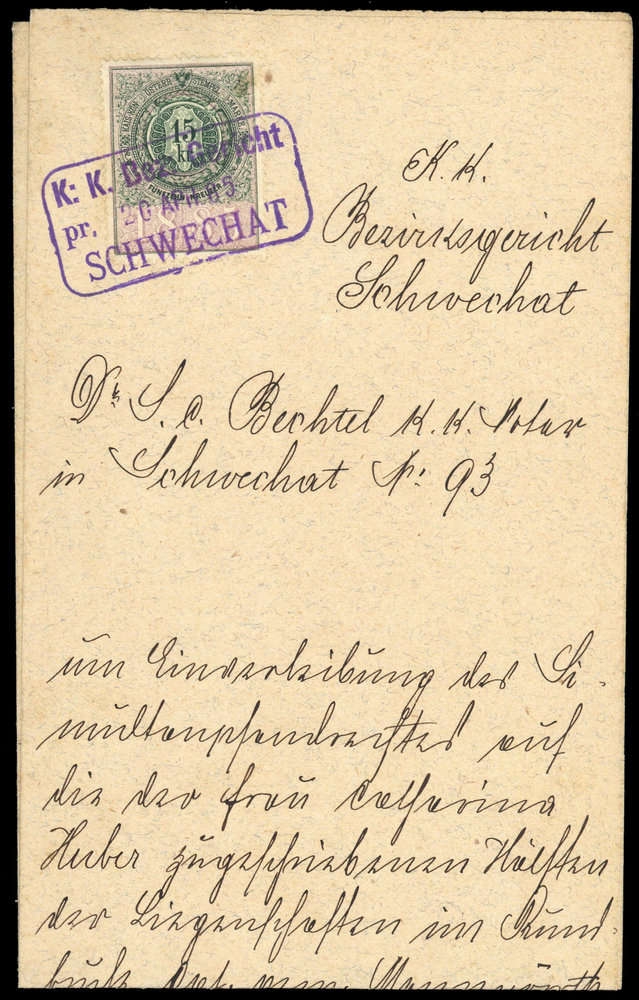 15
kr
FUNFZEHN KREUZER
K: K. Bez. Gericht
pr. 26
SCHWECHAT
K. K.
Bezirksgericht
Schwechat
Dr. J. C. Bechtel K. K. Notar
in Schwechat Nr. 93
um Einverleibung des Si-
multanpfandrechtes auf
die der Frau Catharina
Huber zugeschriebenen Hälften
der Liegenschaften im Grund-
buch